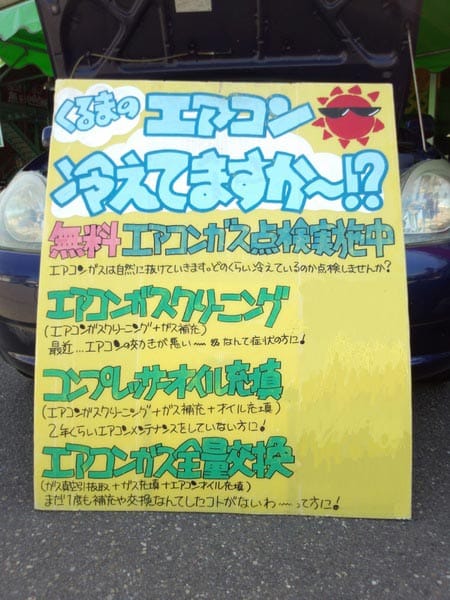 くるまの エアコン
冷えてますか〜!?
無料 エアコンガス点検実施中
エアコンガスは自然に抜けていきます。どのくらい冷えているのか点検しませんか?
エアコンガスクリーニング
(エアコンガスクリーニング+ガス補充)
最近…エアコンの効きが悪い〜 なんて症状の方に!
コンプレッサーオイル充填
(エアコンガスクリーニング+ガス補充+オイル充填)
2年くらいエアコンメンテナンスをしていない方に!
エアコンガス全量交換
(ガス真空引抜取+ガス充填+エアコンオイル充填)
まだ1度も補充や交換なんてしたコトがないわ〜って方に!